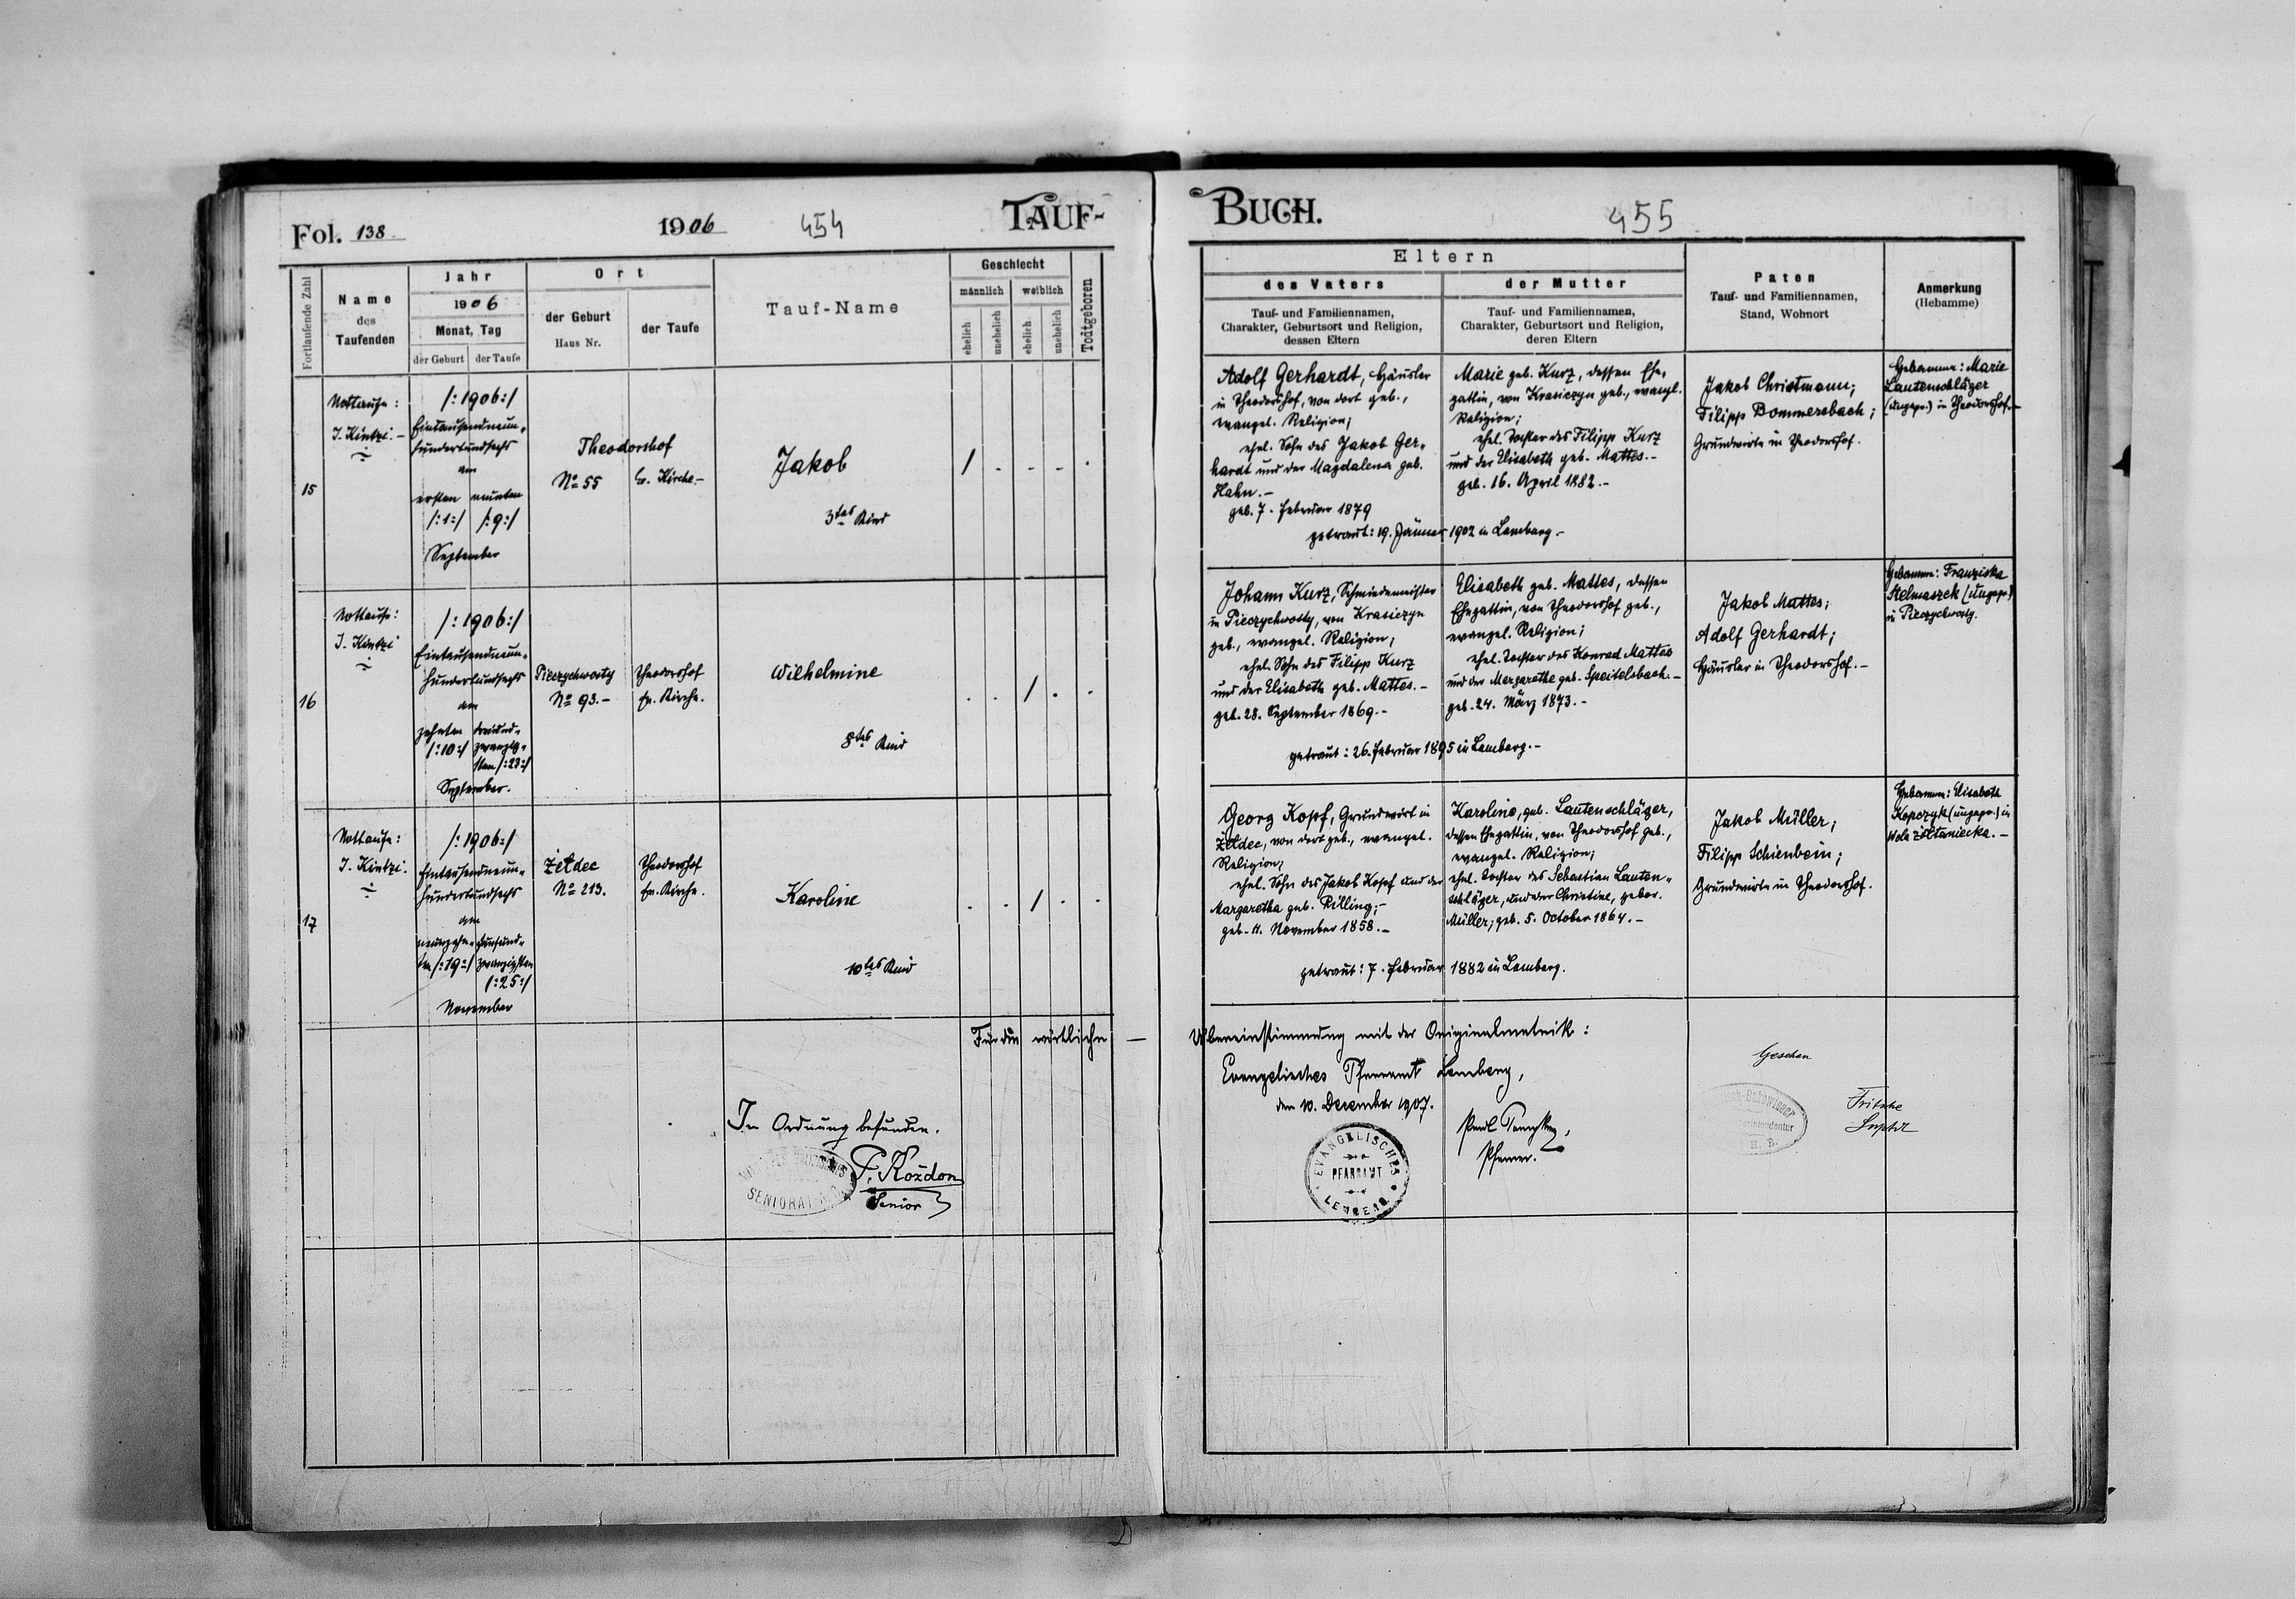 Fol. 138
1906
454
TAUF-
Fortlaufende Zahl
Name
des
Taufenden
Jahr
1906
Monat, Tag
der Geburt
der Taufe
Ort
der Geburt
Haus Nr.
der Taufe
Tauf-Name
Geschlecht
männlich
weiblich
ehelich
unehelich
ehelich
unehelich
Todtgeboren
15
Nottaufe:
J. Kintzi.-
/:1906:/
Eintausendneun-
hundertundsechs
am
ersten
neunten
/:1:/
/:9:/
September
Theodorshof
No 55
Ev. Kirche.-
Jakob
3tes Kind
/ . . . .
16
Nottaufe:
J. Kintzi
/:1906:/
Eintausendneun-
hundertundsechs
am
zehnten
/:10:/
dreiund-
zwanzig-
sten /:23:/
September.
Pieczychwosty
No 93.-
Theodorshof
Ev. Kirche.
Wilhelmine
8tes Kind
. . / . .
17
Nottaufe:
J. Kintzi.
/:1906:/
Eintausendneun-
hundertundsechs
am
neunzehn-
ten /:19:/
fünfund-
zwanzigsten
/:25:/
November
Żeldec
No 213.
Theodorshof
Ev. Kirche.
Karoline
10tes Kind
. . / . .
Für die wörtliche —
In Ordnung befunden.
SENIORAT
F. Kożdon
Senior
BUCH.
455
Eltern
des Vaters
Tauf- und Familiennamen,
Charakter, Geburtsort und Religion,
dessen Eltern
der Mutter
Tauf- und Familiennamen,
Charakter, Geburtsort und Religion,
deren Eltern
Paten
Tauf- und Familiennamen,
Stand, Wohnort
Anmerkung
(Hebamme)
Adolf Gerhardt, Häusler
in Theodorshof, von dort geb.,
evangel. Religion;
ehel. Sohn des Jakob Ger-
hardt und der Magdalena geb.
Hahn.-
geb. 7. Februar 1879
Marie geb. Kurz, dessen Ehe-
gattin, von Krasiczyn geb., evangl.
Religion;
ehel. Tochter des Filipp Kurz
und der Elisabeth geb. Mattes.-
geb. 16. April 1882.-
getraut: 19. Jänner 1902 in Lemberg.-
Jakob Christmann;
Filipp Bommersbach;
Grundwirte in Theodorshof.
Hebamme: Marie
Lautenschläger
(ungepr.) in Theodorshof.-
Johann Kurz, Schmiedemeister
in Pieczychwosty, von Krasiczyn
geb., evangel. Religion;
ehel. Sohn des Filipp Kurz
und der Elisabeth geb. Mattes.-
geb. 28. September 1869.-
Elisabeth geb. Mattes, dessen
Ehegattin, von Theodorshof geb.,
evangel. Religion;
ehel. Tochter des Konrad Mattes
und der Margarethe geb. Speitelsbach.-
geb. 24. März 1873.-
getraut: 26. Februar 1895 in Lemberg.-
Jakob Mattes;
Adolf Gerhardt;
Häusler in Theodorshof.-
Hebamme: Franziska
Stelmaszek (ungepr.)
in Pieczychwosty.
Georg Kopf, Grundwirt in
Żeldec, von dort geb., evangel.
Religion;
ehel. Sohn des Jakob Kopf und der
Margaretha geb. Rilling;-
geb. 11. November 1858.-
Karoline, geb. Lautenschläger,
dessen Ehegattin, von Theodorshof geb.,
evangel. Religion;
ehel. Tochter des Sebastian Lauten-
schläger, und der Christine, gebor.
Müller; geb. 5. October 1864.-
getraut: 7. Februar 1882 in Lemberg.
Jakob Müller;
Filipp Schienbein;
Grundwirte in Theodorshof.
Hebamme: Elisabeth
Kopczyk (ungepr.) in
Wola żółtaniecka.-
Übereinstimmung mit der Originalmatrik:
Evangelisches Pfarramt Lemberg,
den 10. December 1907.
EVANGELISCHES
PFARRAMT
LEMBERG
Pfarrer.
Gesehen
H. B.
Fritsche
Suptdt